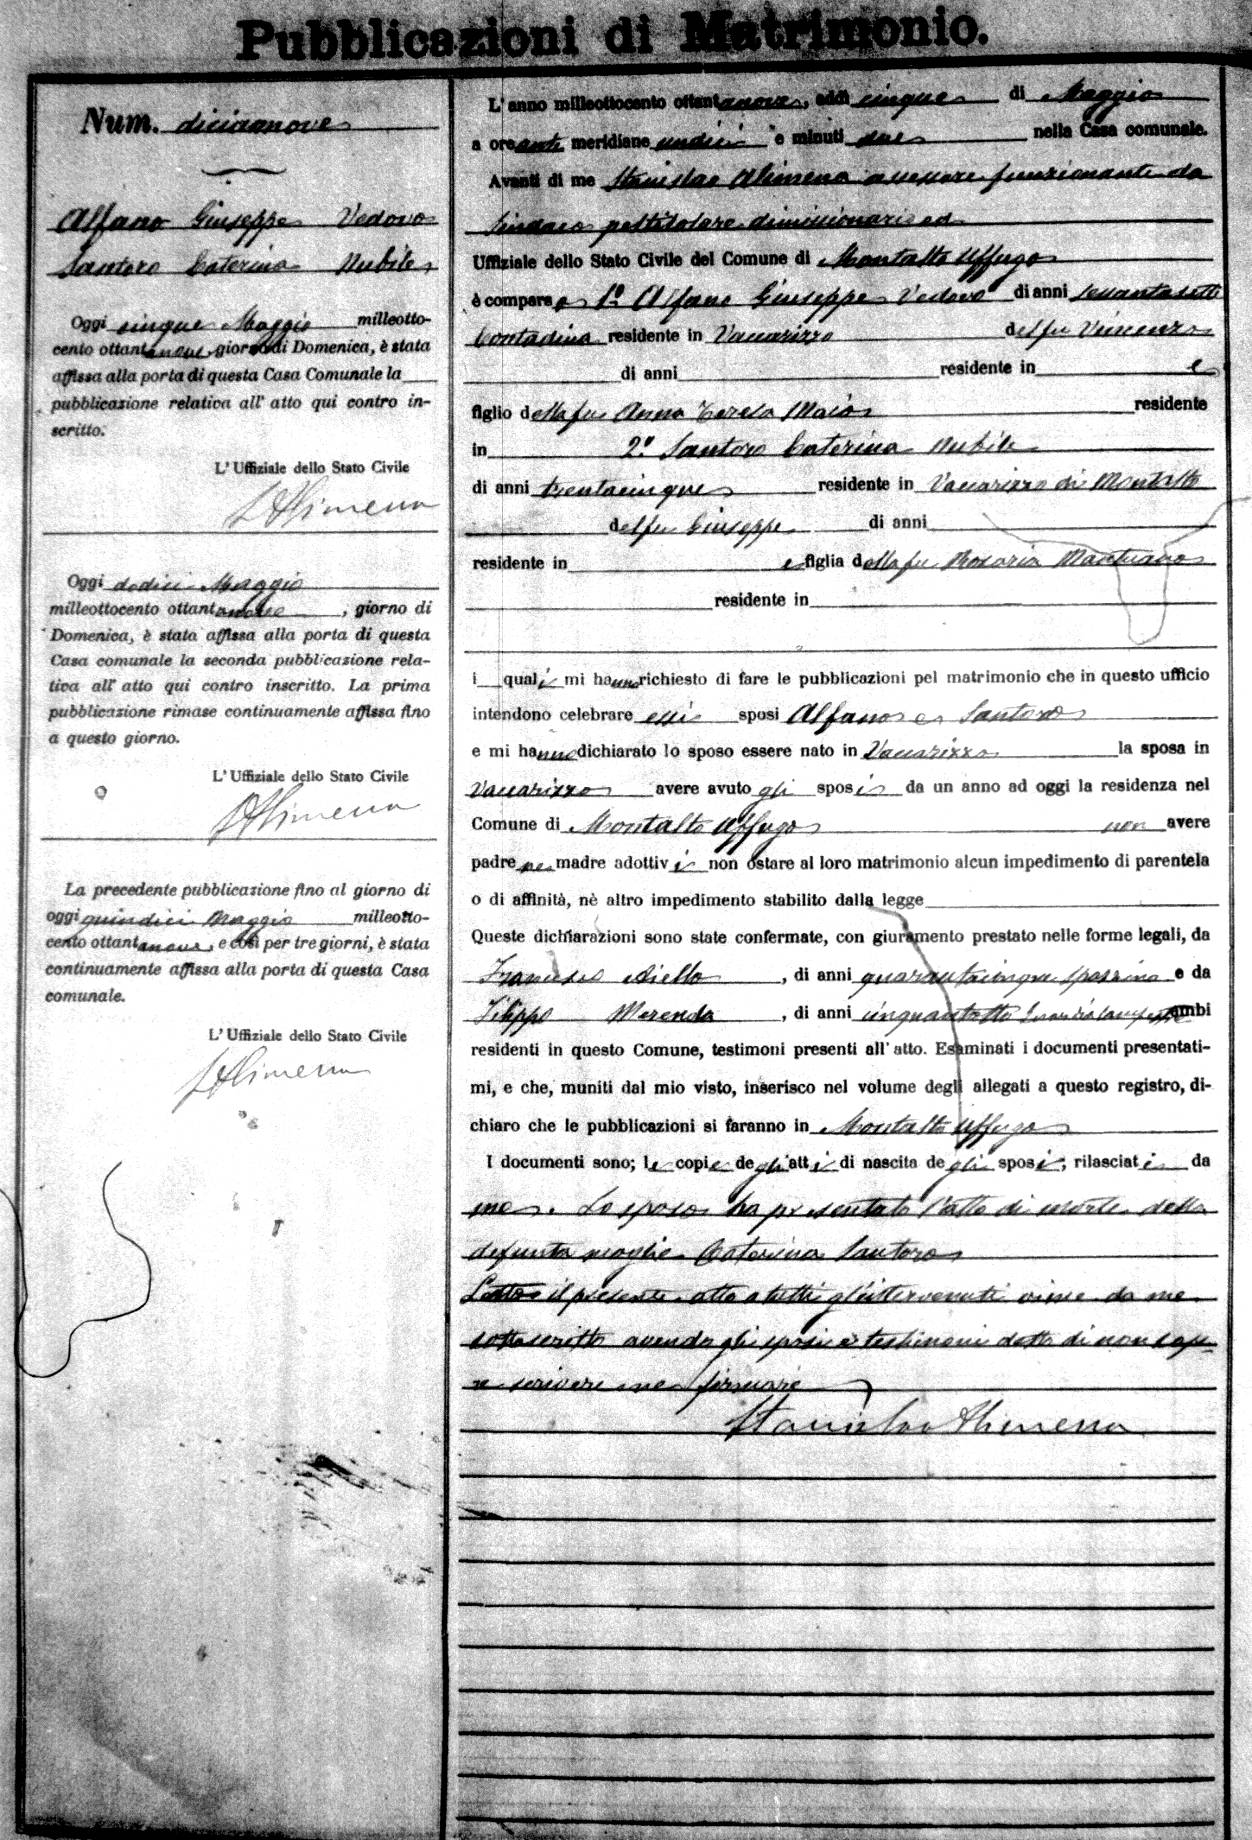 Pubblicazioni di Matrimonio.
Num. diciannove
Alfano Giuseppe Vedovo
Santoro Caterina Nubile
Oggi cinque Maggio milleotto-
cento ottantanove, giorno di Domenica, è stata
affissa alla porta di questa Casa Comunale la
pubblicazione relativa all' atto qui contro in-
scritto.
L' Uffiziale dello Stato Civile
SAlimena
Oggi dodici Maggio
milleottocento ottantanove, giorno di
Domenica, è stata affissa alla porta di questa
Casa comunale la seconda pubblicazione rela-
tiva all' atto qui contro inscritto. La prima
pubblicazione rimase continuamente affissa fino
a questo giorno.
L' Uffiziale dello Stato Civile
SAlimena
La precedente pubblicazione fino al giorno di
oggi quindici Maggio milleotto-
cento ottantanove, e così per tre giorni, è stata
continuamente affissa alla porta di questa Casa
comunale.
L' Uffiziale dello Stato Civile
SAlimena
L' anno milleottocento ottantanove, addì cinque di Maggio
a ore anti meridiane undici e minuti due nella Casa comunale.
Avanti di me Stanislao Alimena assessore funzionante da
Sindaco pel titolare dimissionario ed
Uffiziale dello Stato Civile del Comune di Montalto Uffugo
è comparso 1º Alfano Giuseppe Vedovo di anni sessantasette
Contadino residente in Vaccarizzo del fu Vincenzo
di anni residente in e
figlio della fu Anna Teresa Maio residente
in 2º Santoro Caterina Nubile
di anni trentacinque residente in Vaccarizzo di Montalto
del fu Giuseppe di anni
residente in e figlia della fu Rosaria Mantuano
residente in
i quali mi hanno richiesto di fare le pubblicazioni pel matrimonio che in questo ufficio
intendono celebrare essi sposi Alfano e Santoro
e mi hanno dichiarato lo sposo essere nato in Vaccarizzo la sposa in
Vaccarizzo avere avuto gli sposi da un anno ad oggi la residenza nel
Comune di Montalto Uffugo non avere
padre ne madre adottivi non ostare al loro matrimonio alcun impedimento di parentela
o di affinità, nè altro impedimento stabilito dalla legge
Queste dichiarazioni sono state confermate, con giuramento prestato nelle forme legali, da
Francesco Aiello, di anni quarantacinque spazzino e da
Filippo Merenda, di anni cinquantotto Guardiacampestre ambi
residenti in questo Comune, testimoni presenti all' atto. Esaminati i documenti presentati-
mi, e che, muniti dal mio visto, inserisco nel volume degli allegati a questo registro, di-
chiaro che le pubblicazioni si faranno in Montalto Uffugo
I documenti sono; le copie degli atti di nascita degli sposi, rilasciati da
me. Lo sposo ha presentato l'atto di morte della
defunta moglie Caterina Santoro
Letto il presente atto a tutti gl'intervenuti viene da me
sottoscritto avendo gli sposi e testimoni detto di non sape-
re scrivere ne firmare
Stanislao Alimena